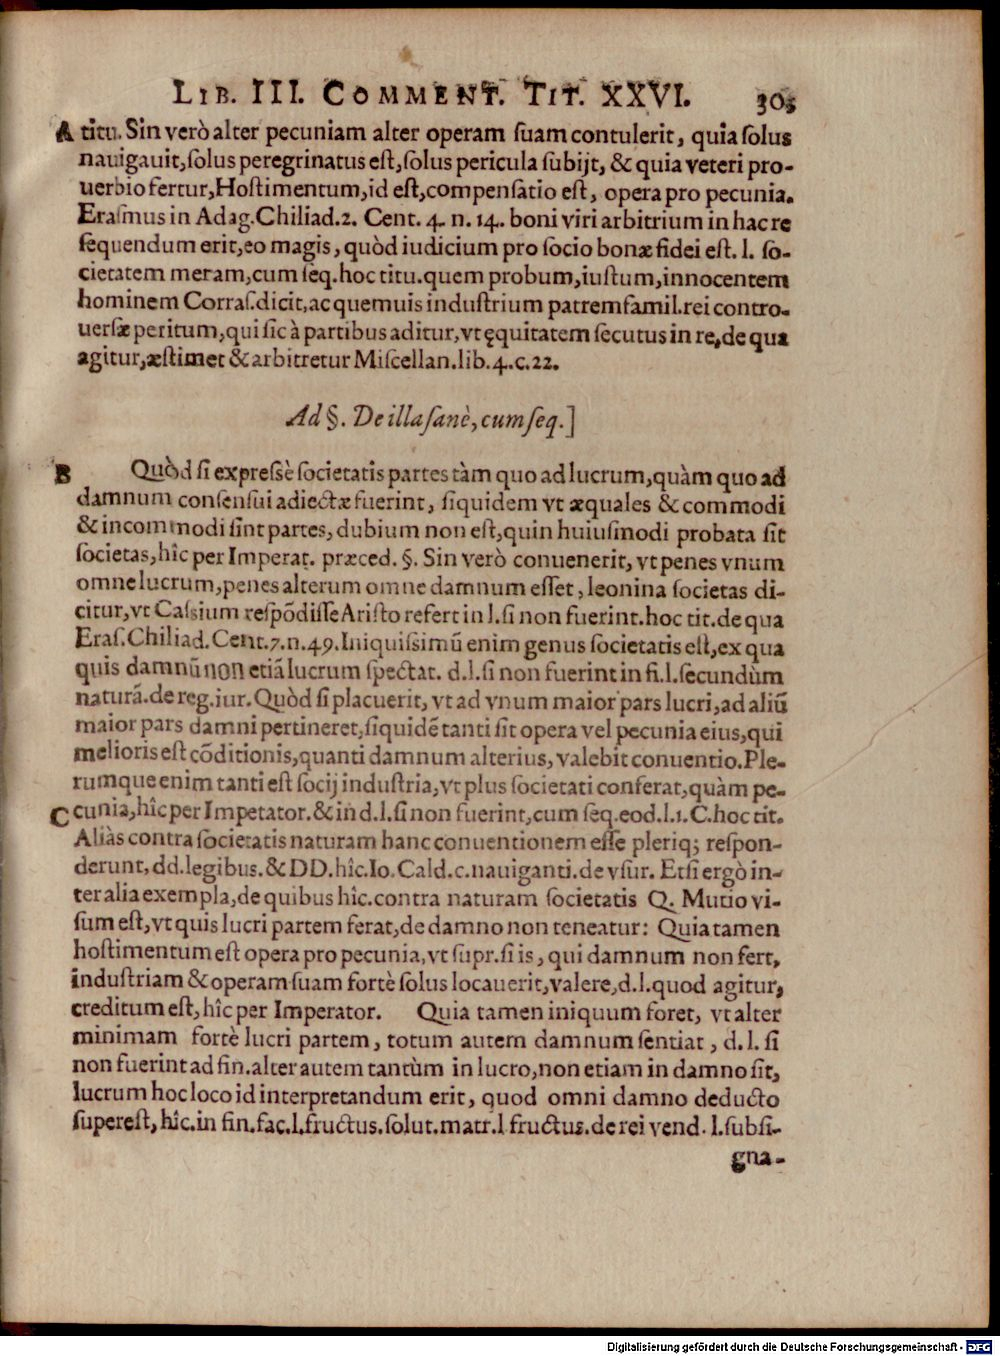 LIB. III. COMMENT. TIT. XXVI. 305
A titu. Sin verò alter pecuniam alter operam suam contulerit, quia solus
nauigauit, solus peregrinatus est, solus pericula subijt, & quia veteri pro-
uerbio fertur, Hostimentum, id est, compensatio est, opera pro pecunia.
Erasmus in Adag. Chiliad. 2. Cent. 4. n. 14. boni viri arbitrium in hac re
sequendum erit, eo magis, quòd iudicium pro socio bonæ fidei est. l. so-
cietatem meram, cum seq. hoc titu. quem probum, iustum, innocentem
hominem Corras. dicit, ac quemuis industrium patremfamil. rei contro-
uersæ peritum, qui sic à partibus aditur, vt ęquitatem secutus in re, de qua
agitur, æstimet & arbitretur Miscellan. lib. 4. c. 22.
Ad §. De illa sanè, cum seq.]
B Quòd si expressè societatis partes tàm quo ad lucrum, quàm quo ad
damnum consensui adiectæ fuerint, siquidem vt æquales & commodi
& incommodi sint partes, dubium non est, quin huiusmodi probata sit
societas, hîc per Imperat. præced. §. Sin verò conuenerit, vt penes vnum
omne lucrum, penes alterum omne damnum esset, leonina societas di-
citur, vt Cassium respõdisse Aristo refert in l. si non fuerint. hoc tit. de qua
Eras. Chiliad. Cent. 7. n. 49. Iniquissimũ enim genus societatis est, ex qua
quis damnũ non etiã lucrum spectat. d. l. si non fuerint in fi. l. secundùm
naturã. de reg. iur. Quòd si placuerit, vt ad vnum maior pars lucri, ad aliũ
maior pars damni pertineret, siquidẽ tanti sit opera vel pecunia eius, qui
melioris est cõditionis, quanti damnum alterius, valebit conuentio. Ple-
rumque enim tanti est socij industria, vt plus societati conferat, quàm pe-
C cunia, hîc per Impetator. & in d. l. si non fuerint, cum seq. eod. l. 1. C. hoc tit.
Aliàs contra societatis naturam hanc conuentionem esse pleriq; respon-
derunt, dd. legibus. & DD. hîc. Io. Cald. c. nauiganti. de vsur. Etsi ergò in-
ter alia exempla, de quibus hîc. contra naturam societatis Q. Mutio vi-
sum est, vt quis lucri partem ferat, de damno non teneatur: Quia tamen
hostimentum est opera pro pecunia, vt supr. si is, qui damnum non fert,
industriam & operam suam fortè solus locauerit, valere, d. l. quod agitur,
creditum est, hîc per Imperator. Quia tamen iniquum foret, vt alter
minimam fortè lucri partem, totum autem damnum sentiat, d. l. si
non fuerint ad fin. alter autem tantùm in lucro, non etiam in damno sit,
lucrum hoc loco id interpretandum erit, quod omni damno deducto
superest, hîc. in fin. fac. l. fructus. solut. matr. l fructus. de rei vend. l. subsi-
gna-
Digitalisierung gefördert durch die Deutsche Forschungsgemeinschaft - DFG